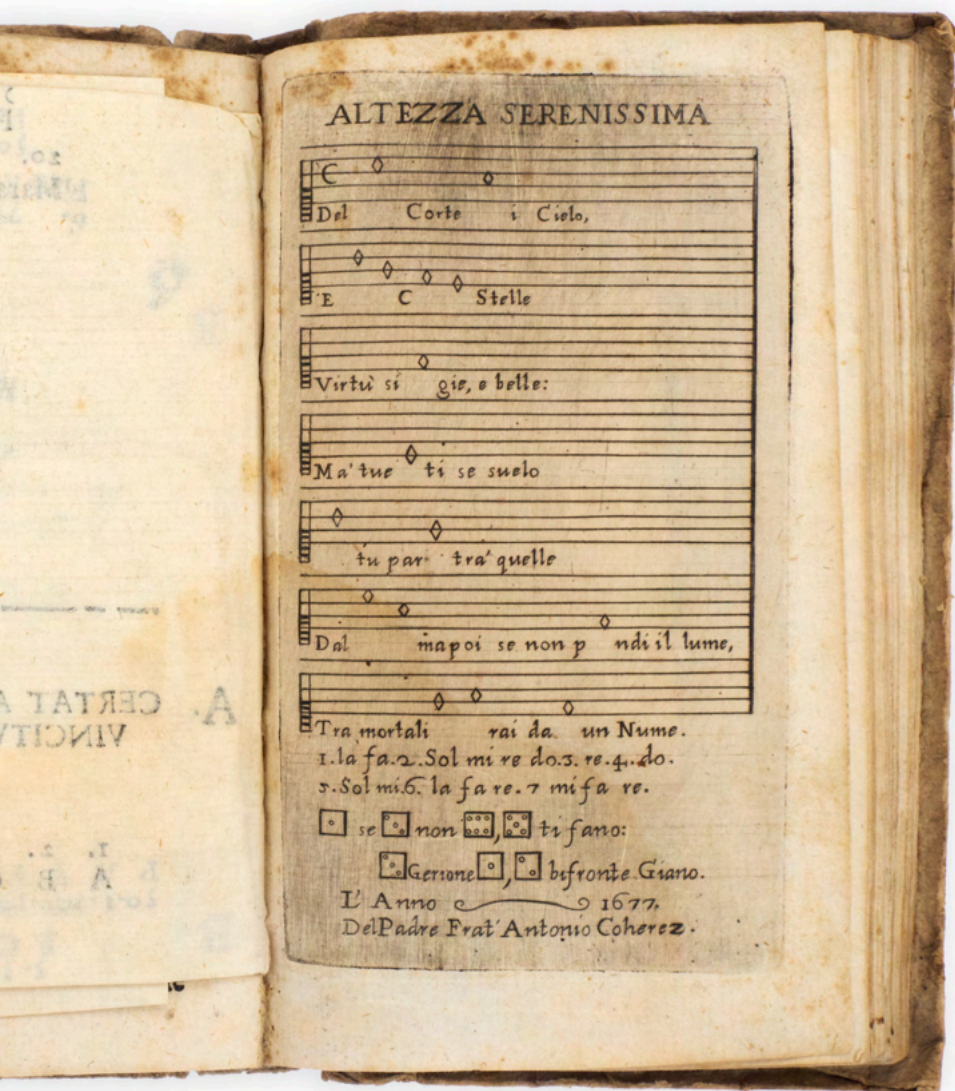 ALTEZZA SERENISSIMA
C
Del Corte i Cielo,
E C Stelle
Virtù si gie, e belle:
Ma' tue ti se suelo
tu par tra' quelle
Dal ma poi se non p ndi il lume,
Tra mortali rai da un Nume.
1. la fa. 2. Sol mi re do. 3. re. 4. do.
5. Sol mi. 6. la fa re. 7 mi fa re.
se non , ti fano:
Gerione , bifronte Giano.
L' Anno 1677.
Del Padre Frat' Antonio Coherez.
20.
A.
CERTAT A
VINCITV
1. 2.
A B